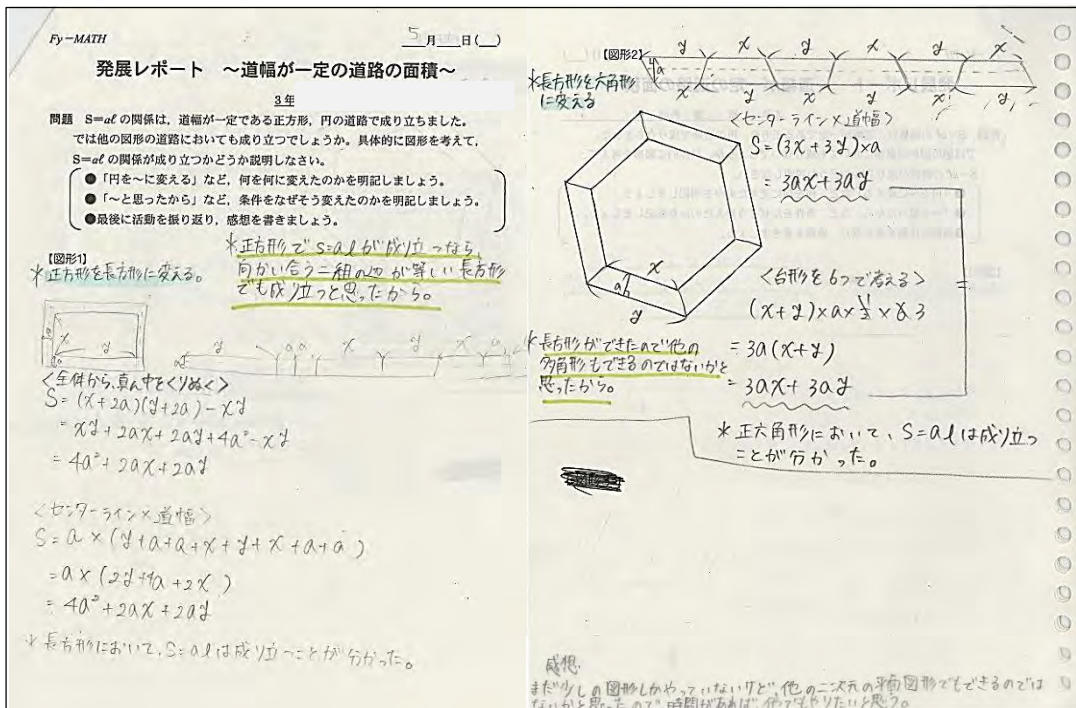 Fy-MATH
5月 日( )
発展レポート ～道幅が一定の道路の面積～
3年
問題 S=aℓ の関係は，道幅が一定である正方形，円の道路で成り立ちました。
では他の図形の道路においても成り立つでしょうか。具体的に図形を考えて，
S=aℓ の関係が成り立つかどうか説明しなさい。
●「円を～に変える」など，何を何に変えたのかを明記しましょう。
●「～と思ったから」など，条件をなぜそう変えたのかを明記しましょう。
●最後に活動を振り返り，感想を書きましょう。
【図形1】
*正方形を長方形に変える。
*正方形でS=aℓが成り立つなら，
向かい合う二組の辺が等しい長方形
でも成り立つと思ったから。
x
y
a
y a a x y x a
<全体から，真ん中をくりぬく>
S=(x+2a)(y+2a)-xy
=xy+2ax+2ay+4a²-xy
=4a²+2ax+2ay
<センターライン×道幅>
S=a×(y+a+a+x+y+x+a+a)
=a×(2y+4a+2x)
=4a²+2ax+2ay
*長方形において，S=aℓは成り立つことが分かった。
【図形2】
y x y x y x
a
x y x y x y
*長方形を六角形
に変える
<センターライン×道幅>
S=(3x+3y)×a
=3ax+3ay
x
a
y
<台形を6つで考える>
(x+y)×a×1/2×6 3
=3a(x+y)
=3ax+3ay
*長方形ができたので他の
多角形もできるのではないかと
思ったから。
*正六角形において，S=aℓは成り立つ
ことが分かった。
感想
まだ少しの図形しかやっていないけど，他の二次元の平面図形でもできるのでは
ないかと思ったので，時間があれば，他でもやりたいと思う。